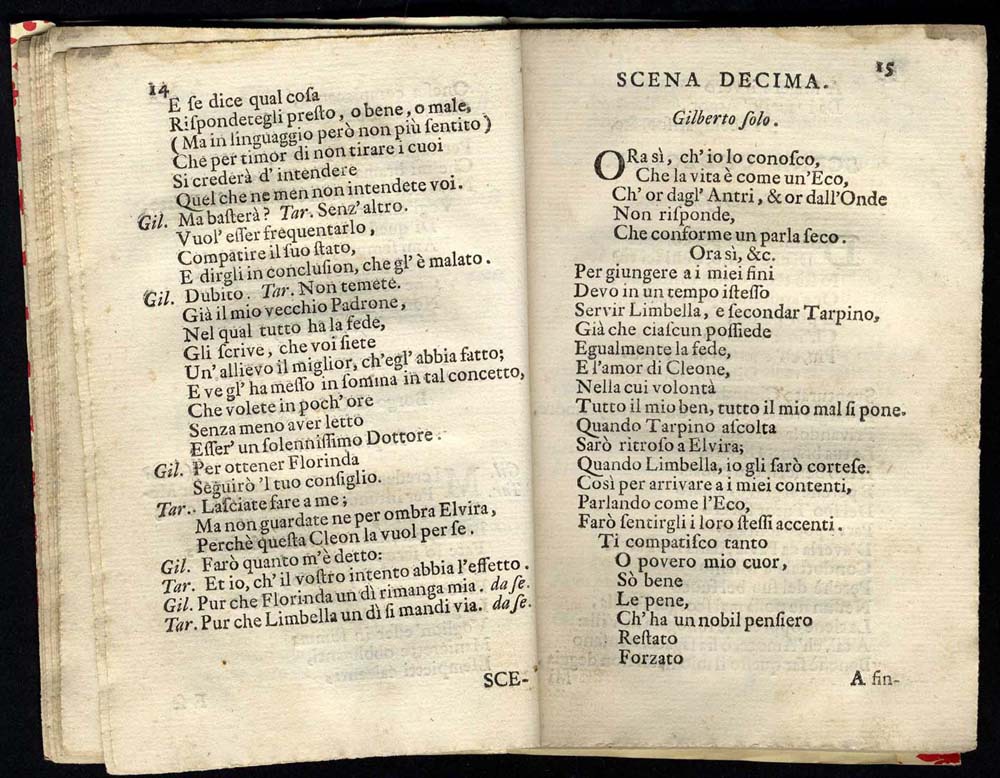 14
E ſe dice qual coſa
Riſpondetegli preſto, o bene, o male,
(Ma in linguaggio però non più ſentito)
Che per timor di non tirare i cuoi
Si crederà d' intendere
Quel che ne men non intendete voi.
Gil. Ma baſterà? Tar. Senz' altro.
Vuol' eſſer frequentarlo,
Compatire il ſuo ſtato,
E dirgli in concluſion, che gl' è malato.
Gil. Dubito. Tar. Non temete.
Già il mio vecchio Padrone,
Nel qual tutto ha la fede,
Gli ſcrive, che voi ſiete
Un' allievo il miglior, ch'egl' abbia fatto;
E ve gl' ha meſſo in ſomma in tal concetto,
Che volete in poch' ore
Senza meno aver letto
Eſſer' un ſolenniſſimo Dottore.
Gil. Per ottener Florinda
Seguirò 'l tuo conſiglio.
Tar. Laſciate fare a me;
Ma non guardate ne per ombra Elvira,
Perchè queſta Cleon la vuol per ſe.
Gil. Farò quanto m'è detto:
Tar. Et io, ch' il voſtro intento abbia l'effetto.
Gil. Pur che Florinda un dì rimanga mia. da ſe.
Tar. Pur che Limbella un dì ſi mandi via. da ſe.
SCE-
15
SCENA DECIMA.
Gilberto ſolo.
ORa sì, ch' io lo conoſco,
Che la vita è come un'Eco,
Ch' or dagl' Antri, & or dall'Onde
Non riſponde,
Che conforme un parla ſeco.
Ora sì, &c.
Per giungere a i miei fini
Devo in un tempo iſteſſo
Servir Limbella, e ſecondar Tarpino,
Già che ciaſcun poſſiede
Egualmente la fede,
E l'amor di Cleone,
Nella cui volontà
Tutto il mio ben, tutto il mio mal ſi pone.
Quando Tarpino aſcolta
Sarò ritroſo a Elvira;
Quando Limbella, io gli ſarò corteſe.
Così per arrivare a i miei contenti,
Parlando come l'Eco,
Farò ſentirgli i loro ſteſſi accenti.
Ti compatiſco tanto
O povero mio cuor,
Sò bene
Le pene,
Ch' ha un nobil penſiero
Reſtato
Forzato
A fin-